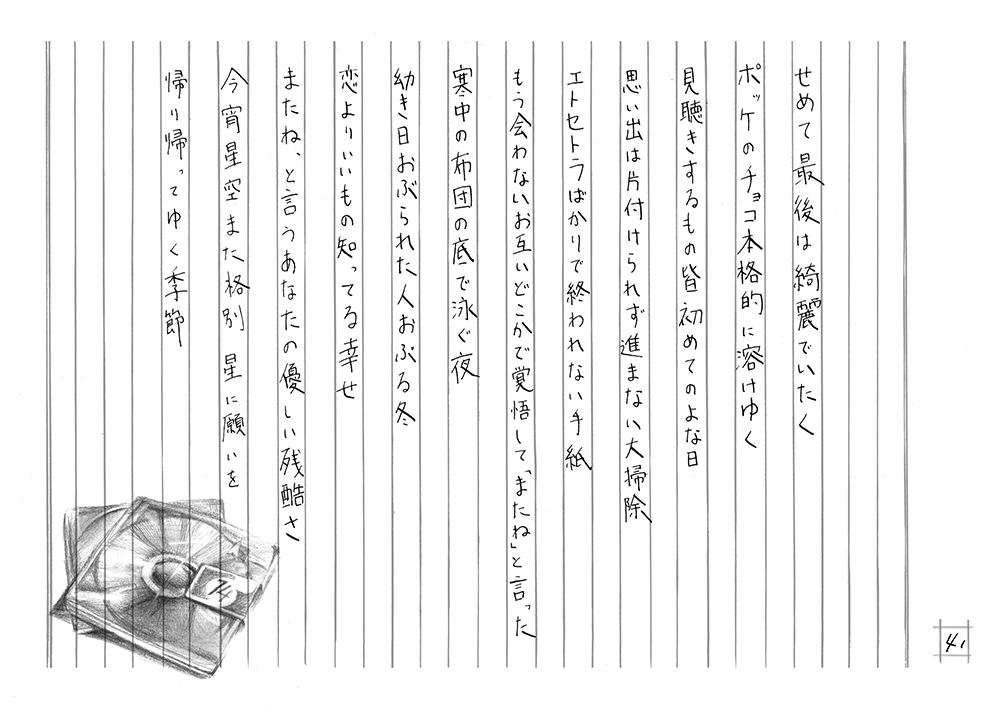 せめて最後は綺麗でいたく
ポッケのチョコ本格的に溶けゆく
見聴きするもの皆初めてのよな日
思い出は片付けられず進まない大掃除
エトセトラばかりで終われない手紙
もう会わないお互いどこかで覚悟して「またね」と言った
寒中の布団の底で泳ぐ夜
幼き日おぶられた人おぶる冬
恋よりいいもの知ってる幸せ
またね、と言うあなたの優しい残酷さ
今宵星空また格別 星に願いを
帰り帰ってゆく季節
14
41